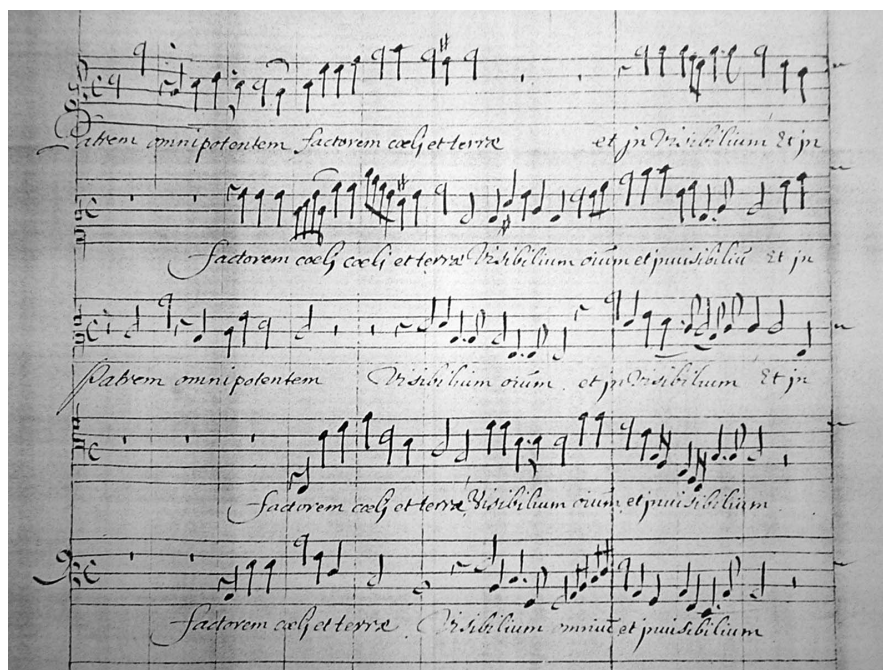 Patrem omnipotentem factorem cœlj et terræ et jn Visibilium Et jn
factorem cœlj cœlj et terræ Visibilium oiūm et jnuisibiliū Et jn
Patrem omnipotentem Visibilium oiūm et jn Visibilium Et jn
factorem cœlj et terræ Visibilium oiūm et jnuisibilium
factorem cœlj et terræ Visibilium omniū et jnuisibilium